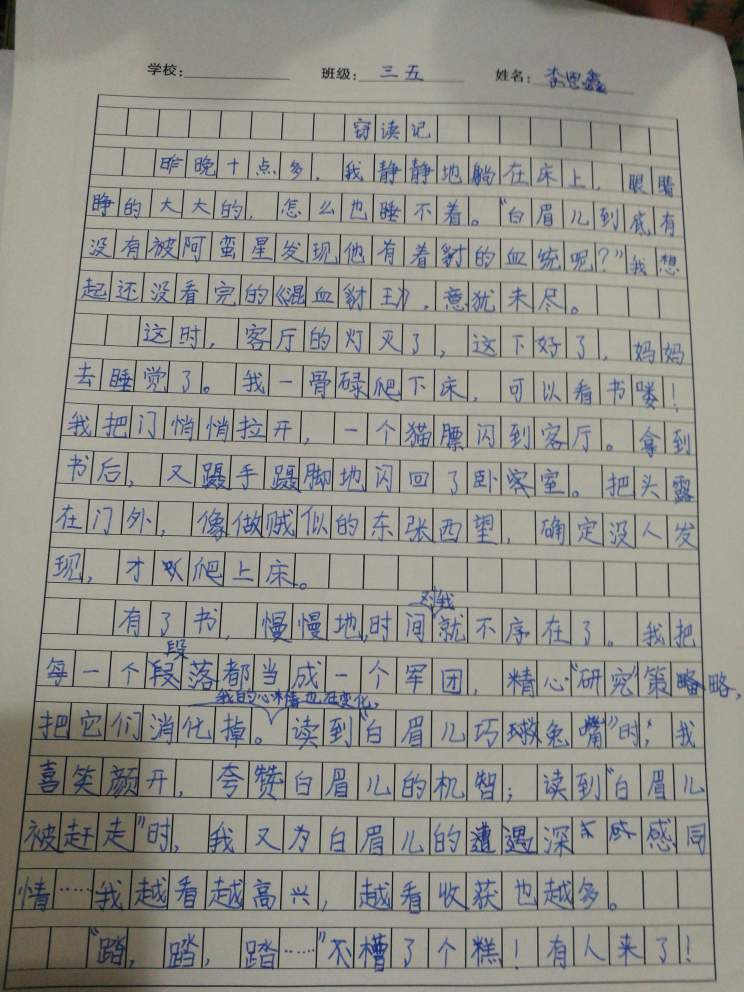 学校： 班级：三五 姓名：李思鑫
窃读记
昨晚十点多，我静静地躺在床上，眼睛
睁的大大的，怎么也睡不着。“白眉儿到底有
没有被阿蛮星发现他有着豺的血统呢？”我想
起还没看完的《混血豺王》，意犹未尽。
这时，客厅的灯灭了，这下好了，妈妈
去睡觉了。我一骨碌爬下床，可以看书喽！
我把门悄悄拉开，一个猫膘闪到客厅。拿到
书后，又蹑手蹑脚地闪回了卧室。把头露
在门外，像做贼似的东张西望，确定没人发
现，才爬上床。
对我
有了书，慢慢地，时间就不存在了。我把
段
每一个段落都当成一个军团，精心“研究”策略，
我的心情也在变化，
把它们消化掉。读到“白眉儿巧救兔嘴”时，我
喜笑颜开，夸赞白眉儿的机智；读到“白眉儿
被赶走”时，我又为白眉儿的遭遇深感同
情……我越看越高兴，越看收获也越多。
“踏，踏，踏……”不糟了个糕！有人来了！